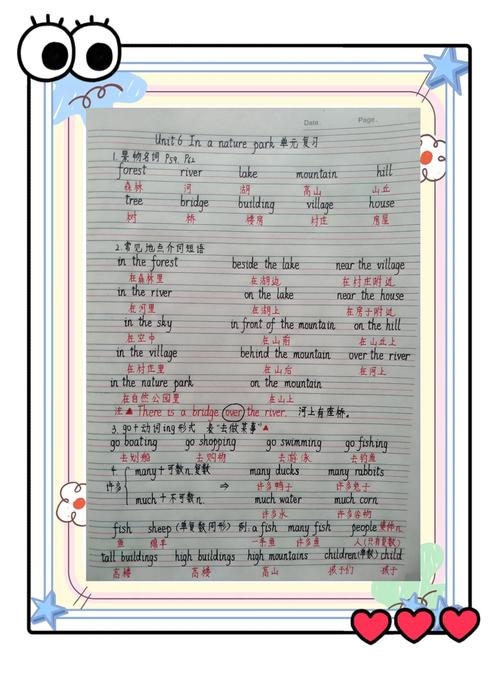 Date. Page.
Unit 6 In a nature park 单元复习
1. 景物名词 P59. P62
forest river lake mountain hill
森林 河 湖 高山 山丘
tree bridge building village house
树 桥 楼房 村庄 房屋
2. 常见地点介词短语
in the forest beside the lake near the village
在森林里 在湖边 在村庄附近
in the river on the lake near the house
在河里 在湖上 在房子附近
in the sky in front of the mountain on the hill
在空中 在山前 在山丘上
in the village behind the mountain over the river
在村庄里 在山后 在河上
in the nature park on the mountain
在自然公园里 在山上
注▲ There is a bridge over the river. 河上有座桥。
3. go+动词ing形式 表"去做某事"▲
go boating go shopping go swimming go fishing
去划船 去购物 去游泳 去钓鱼
4. many+可数n.复数 many ducks many rabbits
许多 ⇒ 许多鸭子 许多兔子
much+不可数n. much water much corn
许多水 许多谷物
fish sheep (单复数同形) 例: a fish many fish people
鱼 绵羊 一条鱼 许多鱼 人(只有复数)
tall buildings high buildings high mountains children(单数) child
高楼 高楼 高山 孩子们 孩子